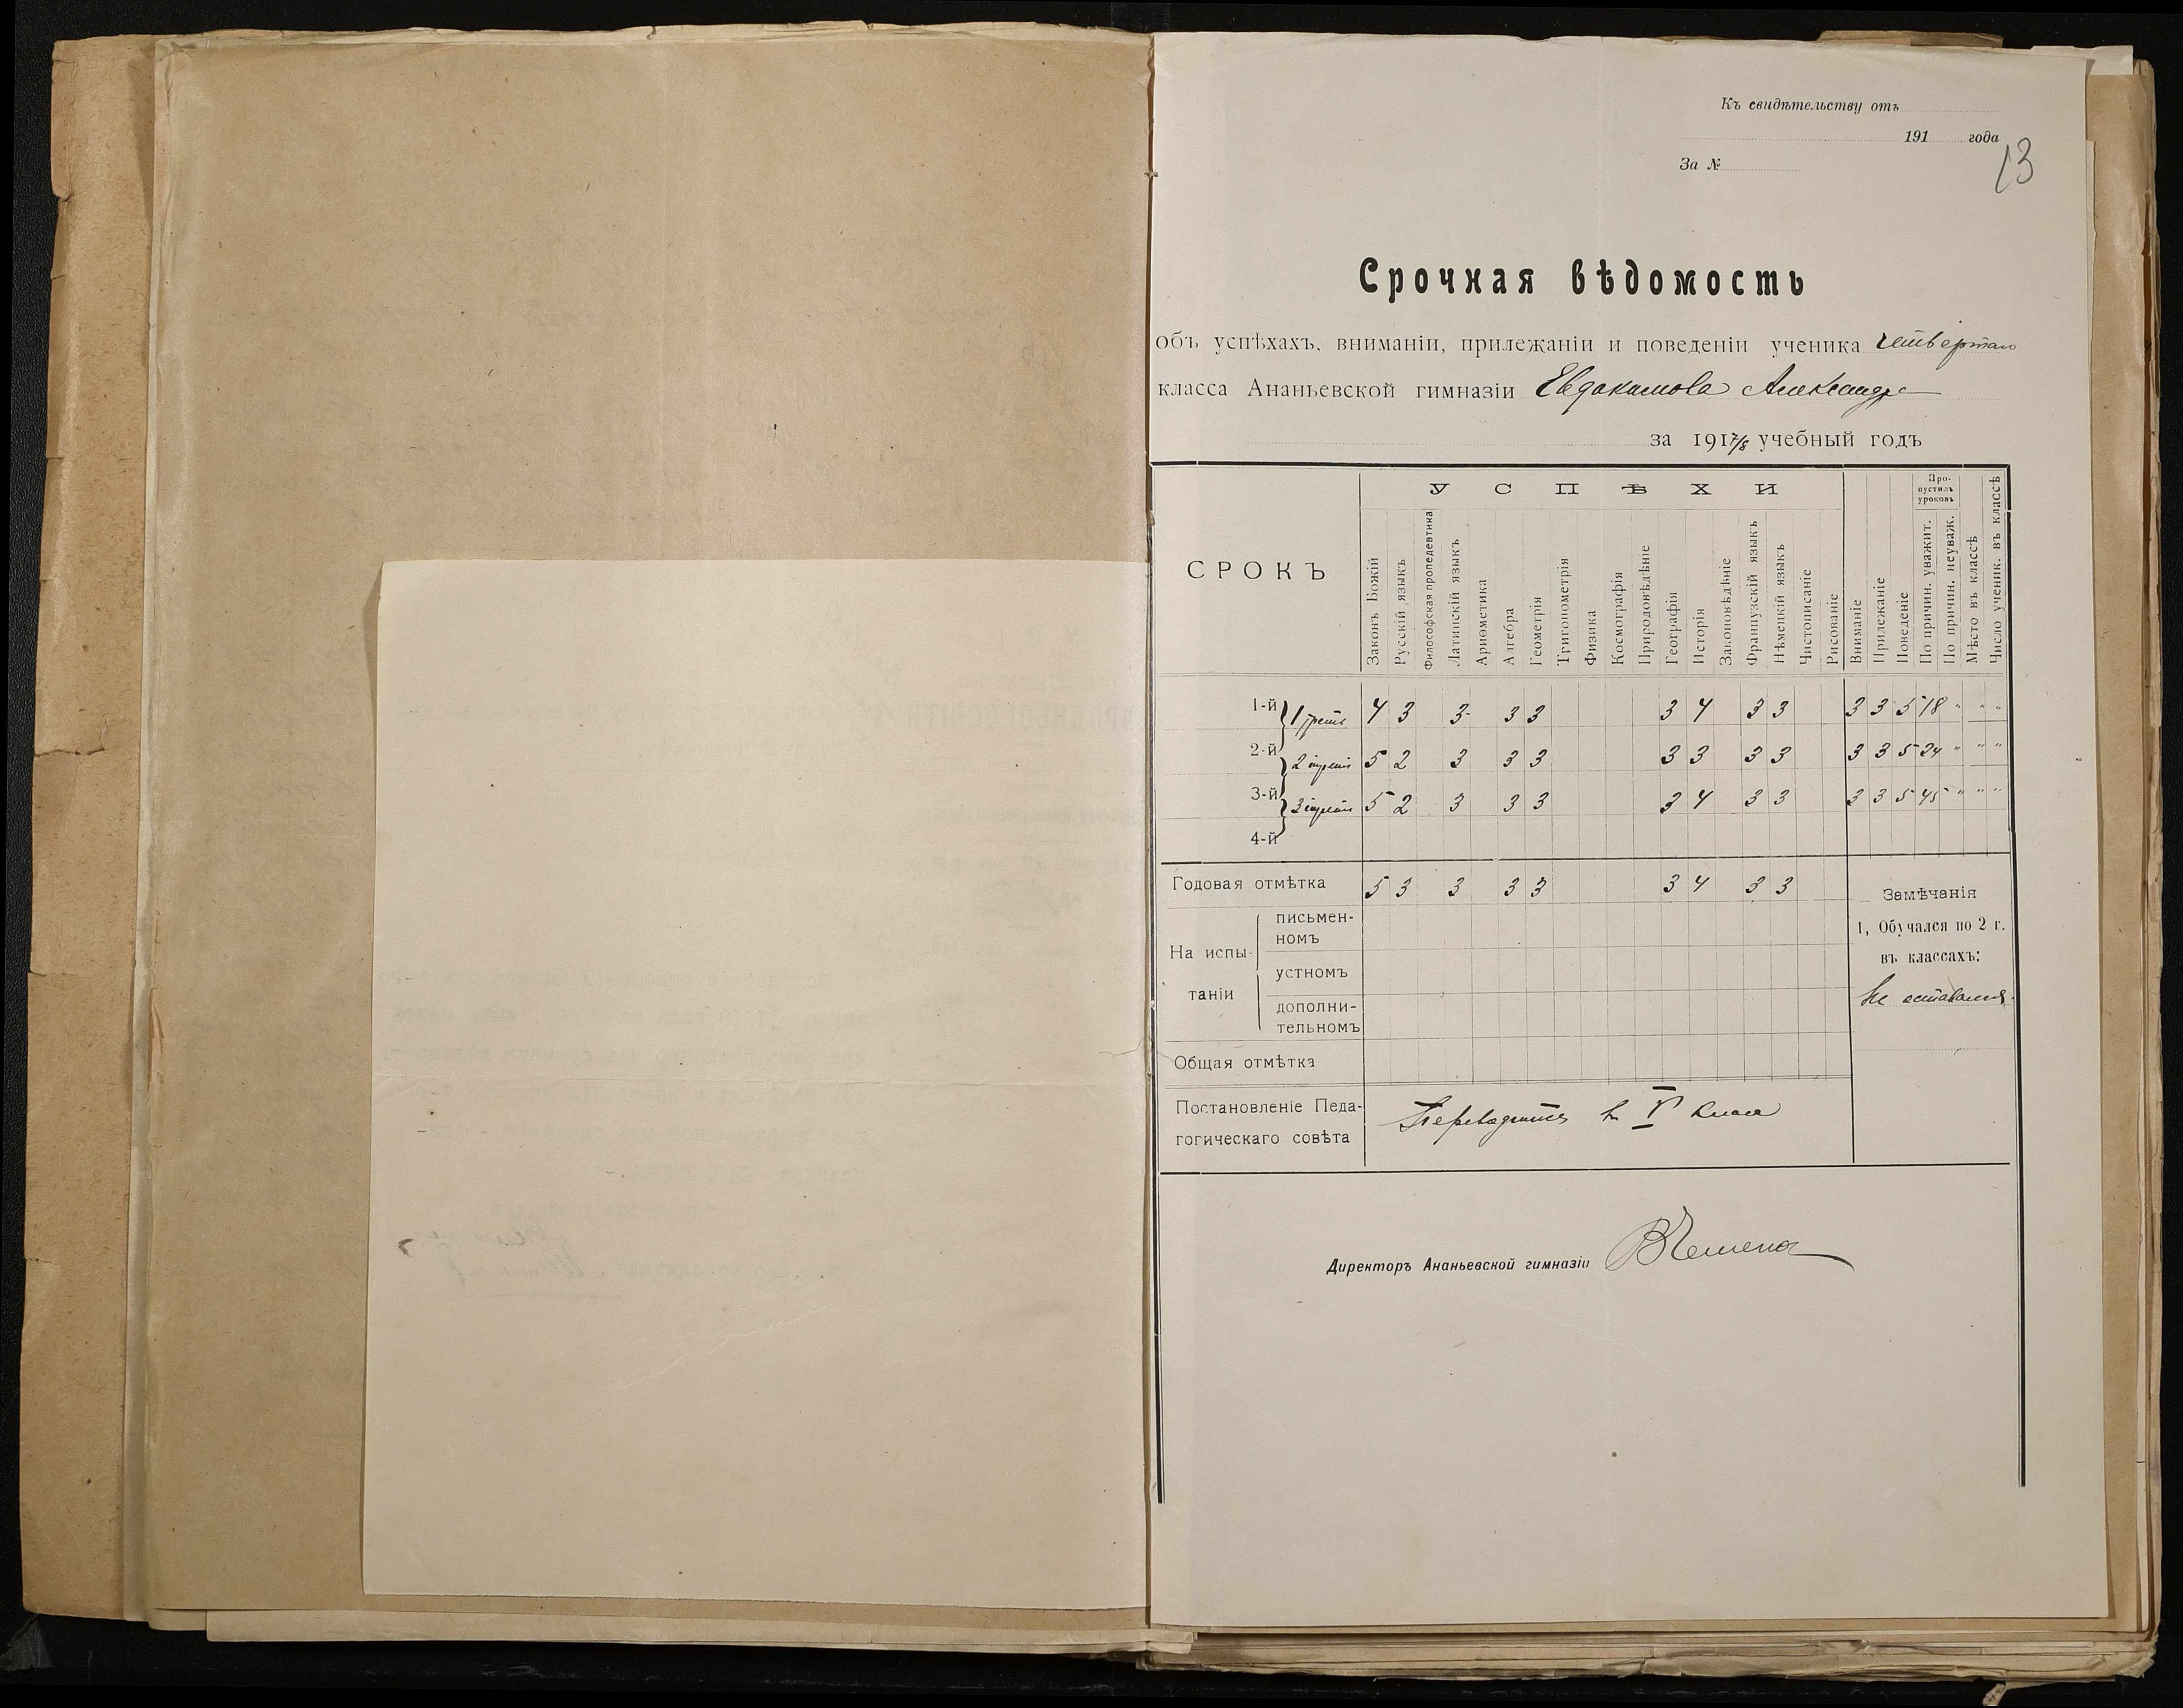 Къ свидѣтельству отъ
191 года
13
За №
Срочная вѣдомость
объ успѣхахъ, вниманіи, прилежаніи и поведеніи ученика четвертаго
класса Ананьевской гимназіи Евдокимова Александра
за 1917/8 учебный годъ
СРОКЪ
УСПѢХИ
Про-
пустилъ
уроковъ
Законъ Божій
Русскій языкъ
Философская пропедевтика
Латинскій языкъ
Ариѳметика
Алгебра
Геометрія
Тригонометрія
Физика
Космографія
Природовѣдѣніе
Географія
Исторія
Законовѣдѣніе
Французскій языкъ
Нѣмецкій языкъ
Чистописаніе
Рисованіе
Вниманіе
Прилежаніе
Поведеніе
По причин. уважит.
По причин. неуваж.
Мѣсто въ классѣ
Число ученик. въ классѣ
1-й 1 треть 4 3 3 3 3 3 4 3 3 3 3 5 18 " " "
2-й 2 треть 5 2 3 3 3 3 3 3 3 3 3 5 24 " " "
3-й 3 треть 5 2 3 3 3 3 4 3 3 3 3 5 45 " " "
4-й
Годовая отмѣтка 5 3 3 3 3 3 4 3 3
Замѣчанія
1, Обучался по 2 г.
въ классахъ:
Не оставался.
На испы-
таніи
письмен-
номъ
устномъ
дополни-
тельномъ
Общая отмѣтка
Постановленіе Педа-
гогическаго совѣта
Переводится въ V классъ
Директоръ Ананьевской гимназіи